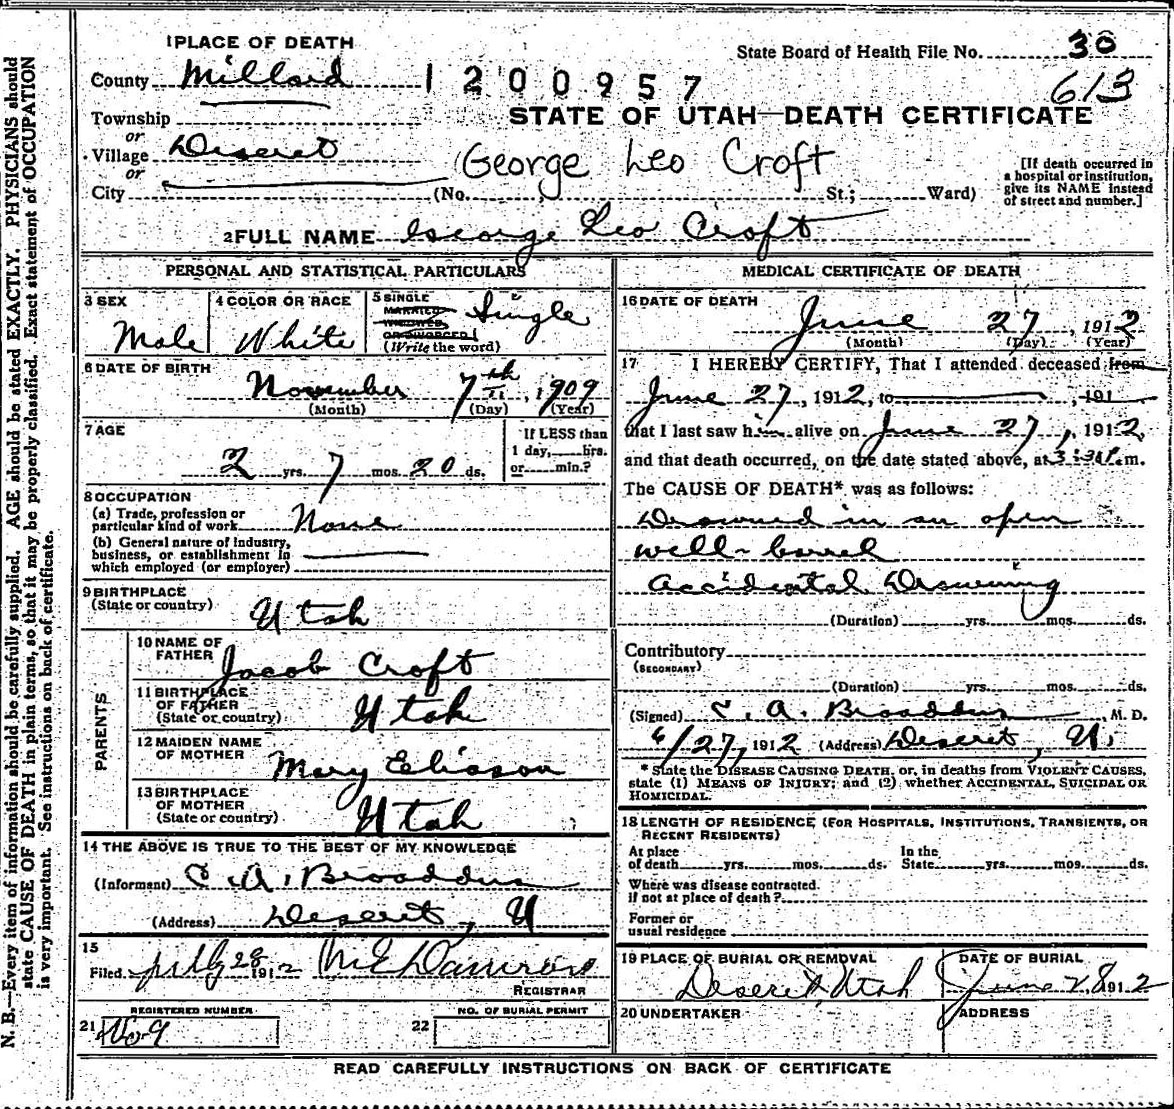 N. B.—Every item of information should be carefully supplied. AGE should be stated EXACTLY. PHYSICIANS should
state CAUSE OF DEATH in plain terms, so that it may be properly classified. Exact statement of OCCUPATION
is very important. See instructions on back of certificate.
1 PLACE OF DEATH
State Board of Health File No. 30
County Millard
1200957
613
Township
or
Village Deseret
or
City
STATE OF UTAH—DEATH CERTIFICATE
George Leo Croft
(No. St.; Ward)
[If death occurred in
a hospital or institution,
give its NAME instead
of street and number.]
2 FULL NAME George Leo Croft
PERSONAL AND STATISTICAL PARTICULARS
3 SEX
Male
4 COLOR OR RACE
White
5 SINGLE
MARRIED,
WIDOWED,
OR DIVORCED
(Write the word)
Single
6 DATE OF BIRTH
November 7th, 1909
(Month) (Day) (Year)
7 AGE
2 yrs. 7 mos. 20 ds.
If LESS than
1 day, hrs.
or min.?
8 OCCUPATION
(a) Trade, profession or
particular kind of work None
(b) General nature of industry,
business, or establishment in
which employed (or employer)
9 BIRTHPLACE
(State or country) Utah
PARENTS
10 NAME OF
FATHER Jacob Croft
11 BIRTHPLACE
OF FATHER
(State or country) Utah
12 MAIDEN NAME
OF MOTHER Mary Eliason
13 BIRTHPLACE
OF MOTHER
(State or country) Utah
14 THE ABOVE IS TRUE TO THE BEST OF MY KNOWLEDGE
(Informant) C. A. Broaddus
(Address) Deseret, U
15
Filed July 28 1912 M E Damron
REGISTRAR
REGISTERED NUMBER
21 No 9
NO. OF BURIAL PERMIT
22
MEDICAL CERTIFICATE OF DEATH
16 DATE OF DEATH
June 27, 1912
(Month) (Day) (Year)
17 I HEREBY CERTIFY, That I attended deceased from
June 27, 1912, to , 191
that I last saw him alive on June 27, 1912,
and that death occurred, on the date stated above, at 3:30 P.m.
The CAUSE OF DEATH* was as follows:
Drowned in an open
well-barrel
Accidental Drowning
(Duration) yrs. mos. ds.
Contributory
(SECONDARY)
(Duration) yrs. mos. ds.
(Signed) C. A. Broaddus, M. D.
6/27, 1912 (Address) Deseret, U.
* State the DISEASE CAUSING DEATH, or, in deaths from VIOLENT CAUSES,
state (1) MEANS OF INJURY; and (2) whether ACCIDENTAL, SUICIDAL OR
HOMICIDAL.
18 LENGTH OF RESIDENCE (FOR HOSPITALS, INSTITUTIONS, TRANSIENTS, OR
RECENT RESIDENTS)
At place In the
of death yrs. mos. ds. State yrs. mos. ds.
Where was disease contracted
if not at place of death?
Former or
usual residence
19 PLACE OF BURIAL OR REMOVAL
Deseret, Utah
DATE OF BURIAL
June 28 1912
20 UNDERTAKER
ADDRESS
READ CAREFULLY INSTRUCTIONS ON BACK OF CERTIFICATE